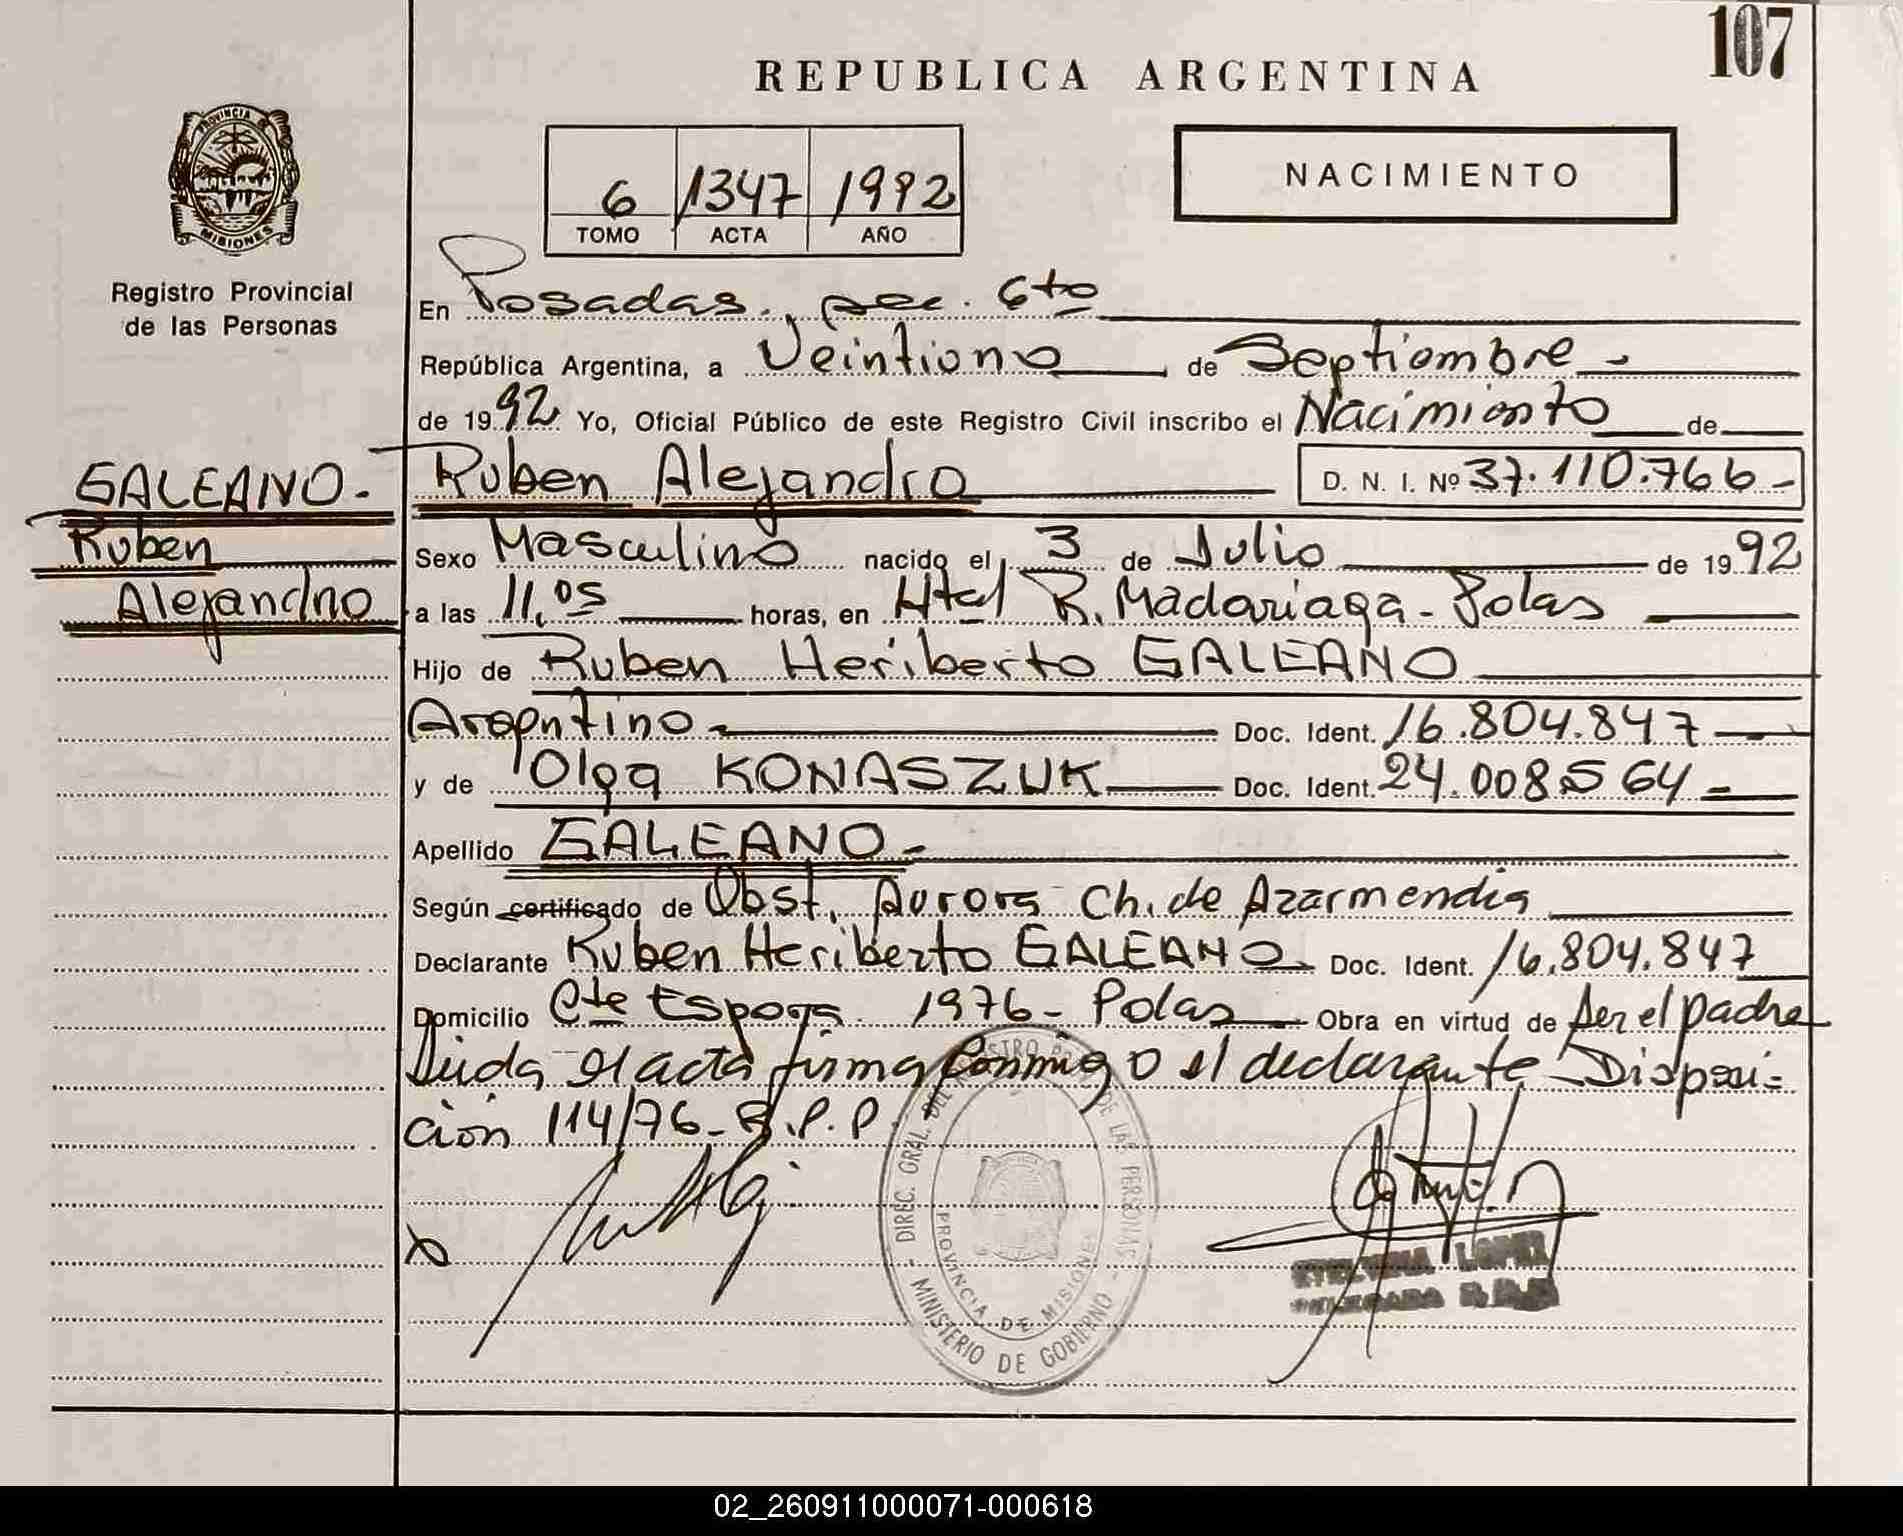 107
REPUBLICA ARGENTINA
PROVINCIA DE
MISIONES
Registro Provincial
de las Personas
6 1347 1992
TOMO ACTA AÑO
NACIMIENTO
En Posadas, sec. 6to
República Argentina, a Veintiuno de Septiembre
de 1992 Yo, Oficial Público de este Registro Civil inscribo el Nacimiento de
GALEANO-
Ruben
Alejandro
Ruben Alejandro D. N. I. Nº 37.110.766-
Sexo Masculino nacido el 3 de Julio de 1992
a las 11,05 horas, en Htal R. Madariaga - Pdas
Hijo de Ruben Heriberto GALEANO
Argentino- Doc. Ident. 16.804.847
y de Olga KONASZUK Doc. Ident. 24.008564-
Apellido GALEANO-
Según certificado de Obst. Aurora Ch. de Azarmendia
Declarante Ruben Heriberto GALEANO- Doc. Ident. 16.804.847
Domicilio Cte Espora 1976- Pdas Obra en virtud de ser el padre
Leida el acta firma conmigo el declarante - Disposi-
ción 114/76- R.P.P.
DIREC. GRAL. DEL REGISTRO PCIAL. DE LAS PERSONAS
PROVINCIA DE MISIONES
MINISTERIO DE GOBIERNO
LOPEZ
02_260911000071-000618